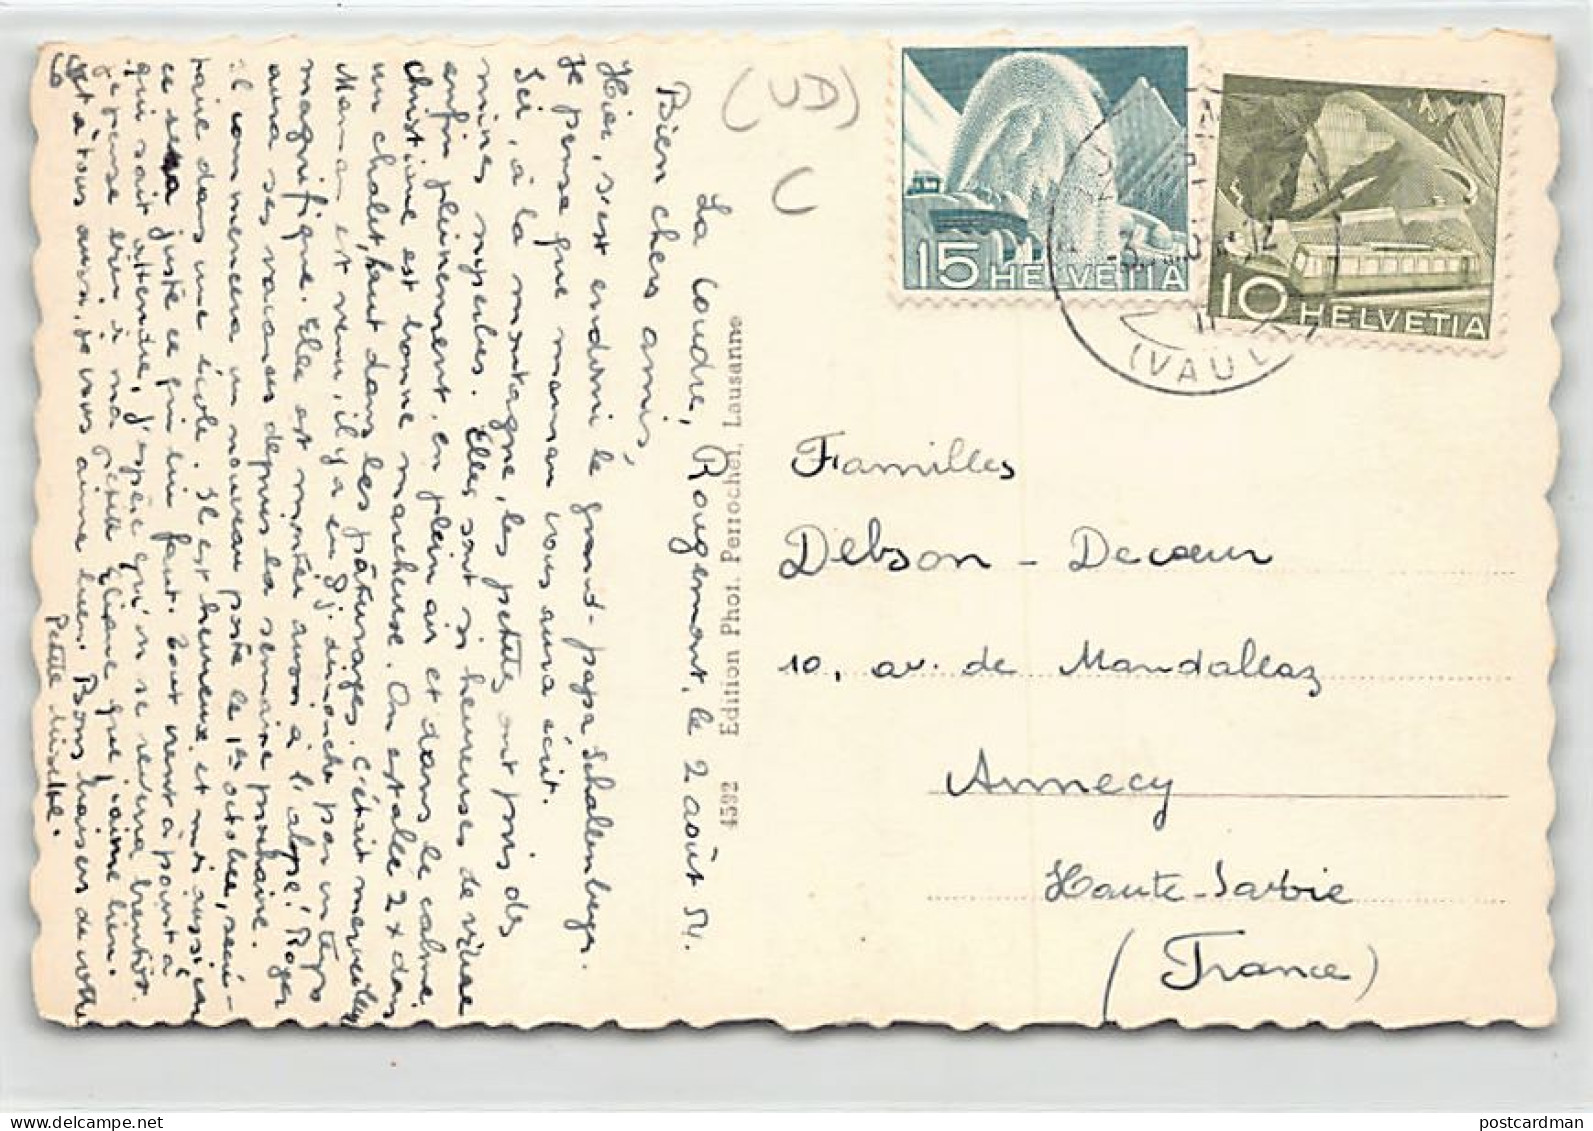 (UD)
U
15 HELVETIA
10 HELVETIA
(VAUD
La Coudre, Rougemont, le 2 août 54.
Bien chers amis,
Hier, s'est endormi le grand-papa Schallenberger.
Je pense que maman vous aura écrit.
Ici, à la montagne, les petites ont pris des
mines superbes. Elles sont si heureuses de vivre
enfin pleinement, en plein air et dans le calme.
Christiane est bonne marcheuse. On est allée 2 x dans
un chalet, haut dans les pâturages. C'était merveilleux
Maman est venu, il y a eu 8 j. dimanche par un temps
magnifique. Elle est montée aussi à l'alpe! Roger
aura ses vacances depuis la semaine prochaine.
Il commencera un nouveau poste le 1er octobre, secré-
taire dans une école. Il est heureux et moi aussi car
ce sera juste ce qu'il lui faut. Tout vient à point à
qui sait attendre, j'espère qu'on se reverra bientôt.
Je pense bien à ma petite Eliane que j'aime bien.
Et à vous aussi, je vous aime bien. Bons baisers de votre
Petite Misette.
4592 Edition Phot. Perrochet, Lausanne
Familles
Debson - Decœur
10, av. de Mandallaz
Annecy
Haute-Savoie
(France)
postcardman